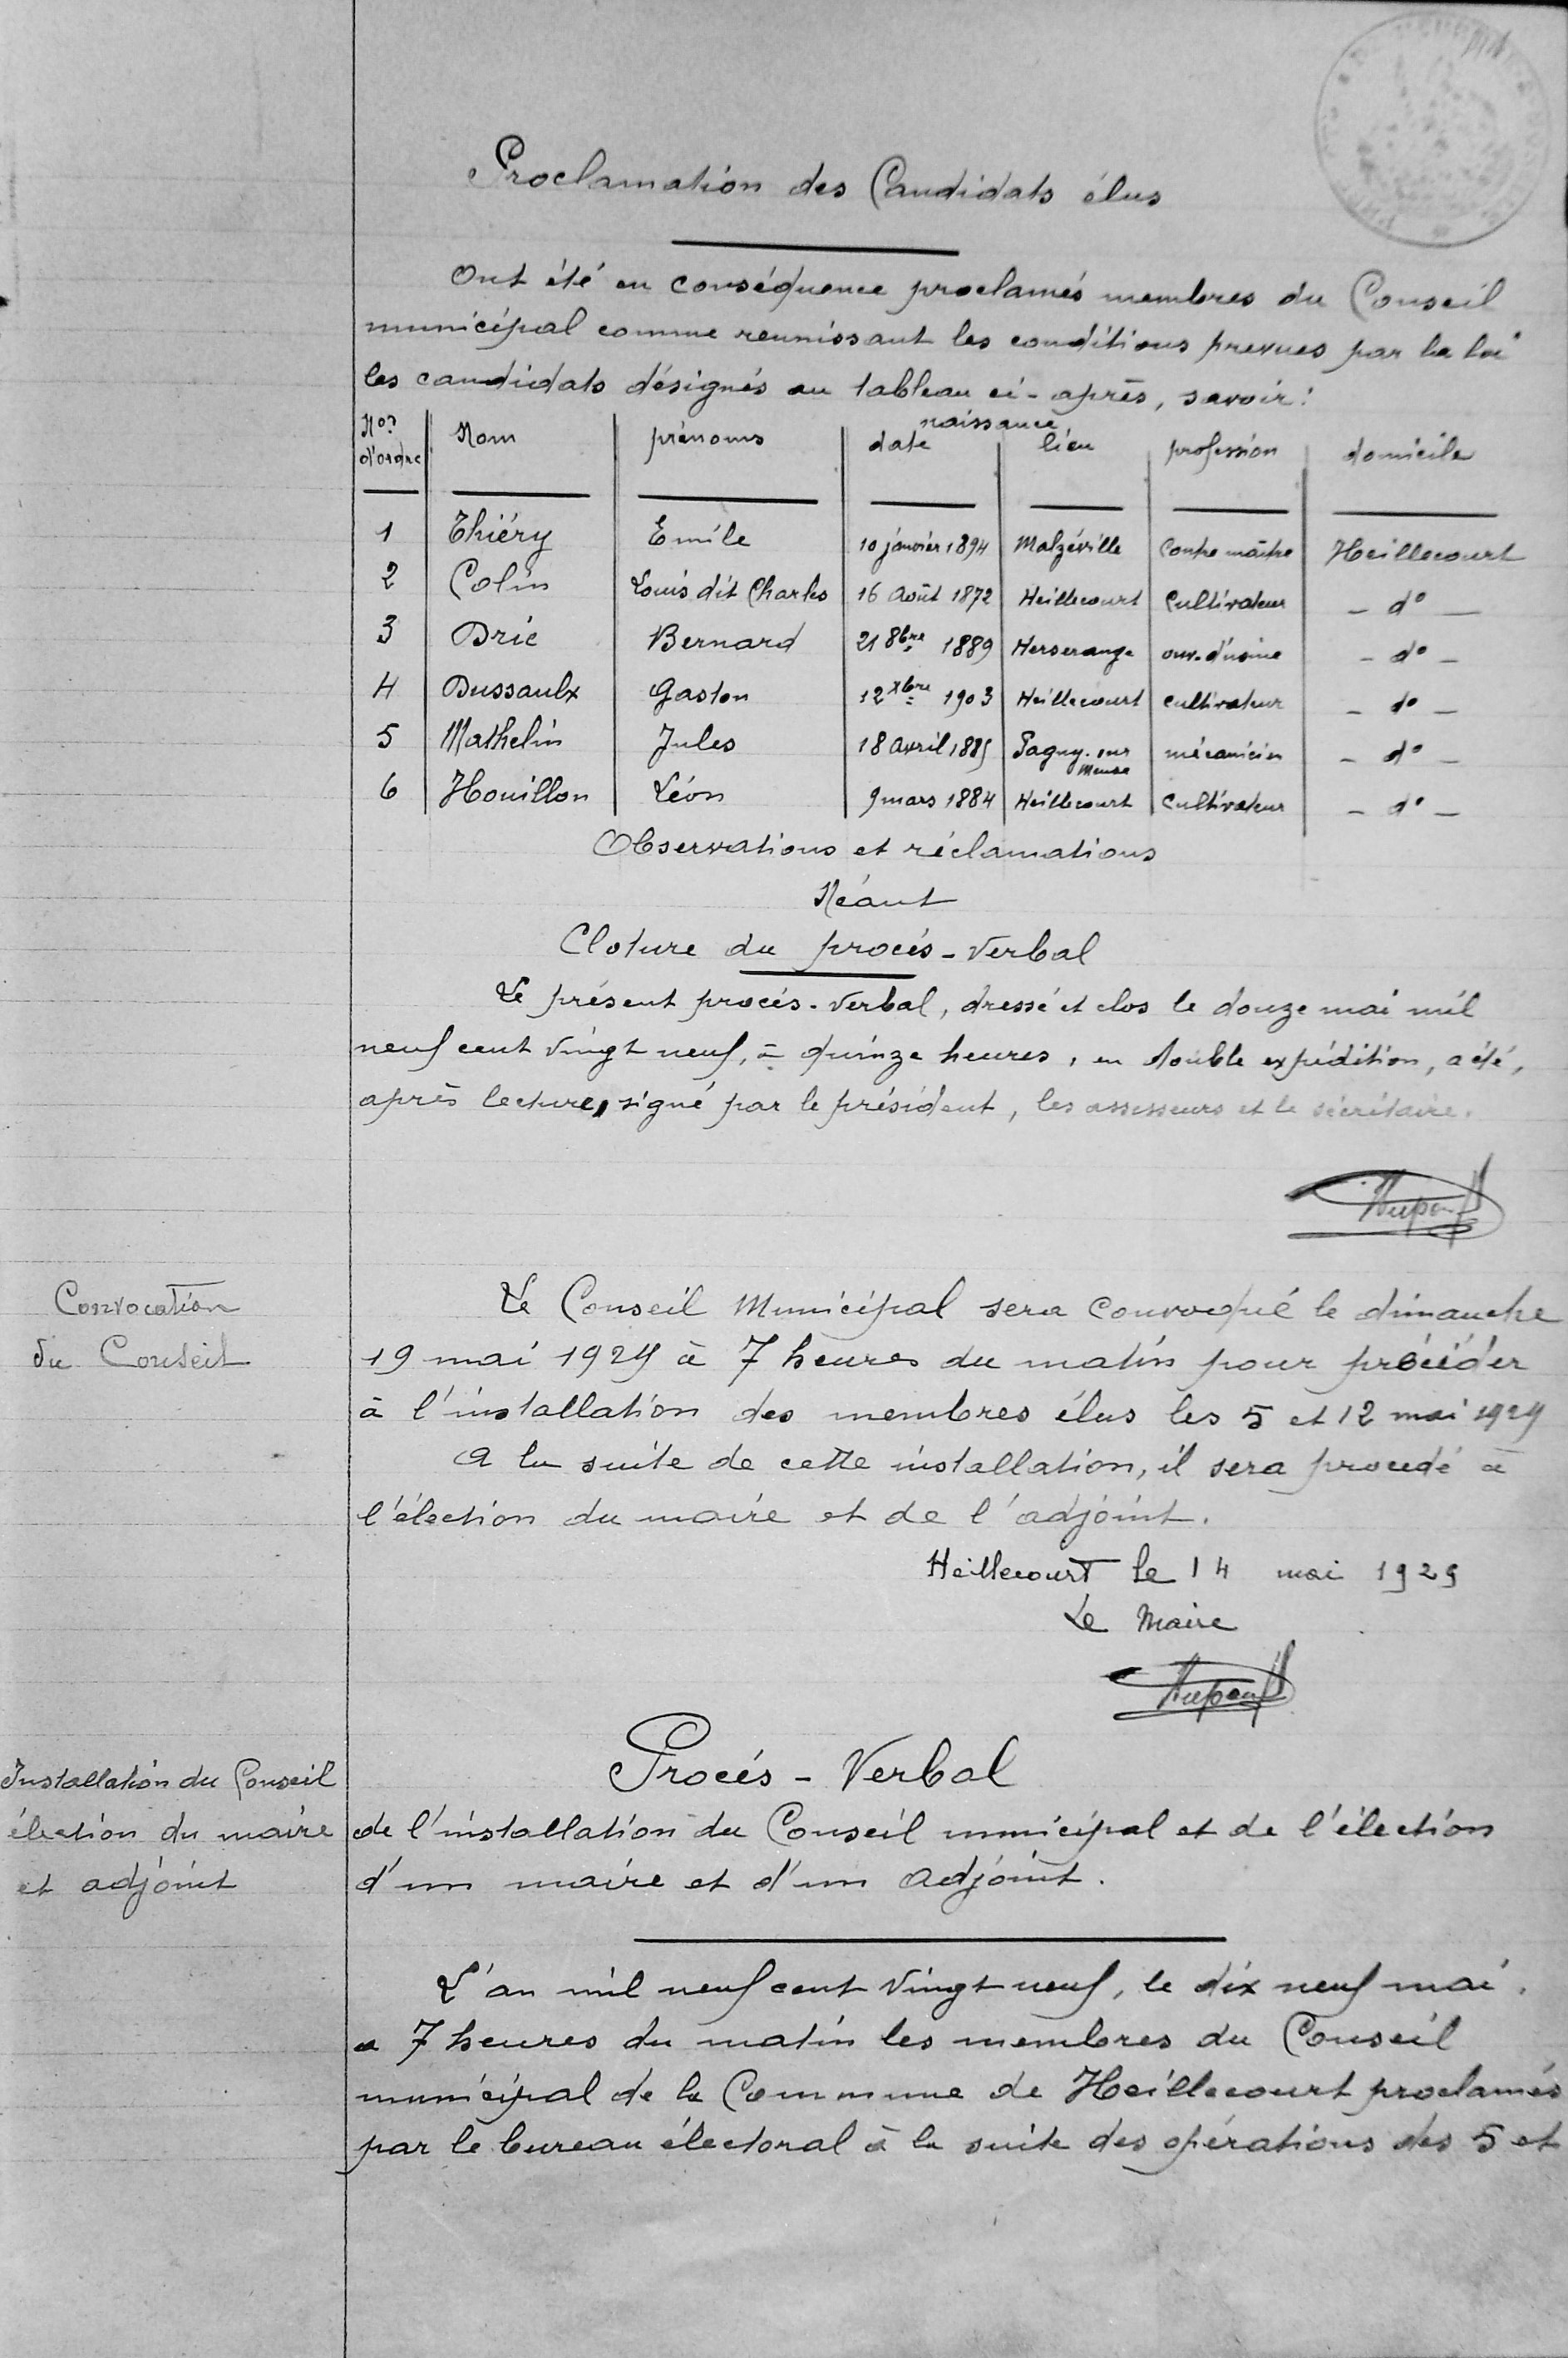 Proclamation des Candidats élus
Ont été en conséquence proclamés membres du Conseil
municipal comme reunissant les conditions prevues par la loi
les candidats désignés au tableau ci-après, savoir:
Nos d'ordre Nom prénoms naissance date lieu profession domicile
1 Thiéry Emile 10 janvier 1894 Malzéville Contre maître Heillecourt
2 Colin Louis dit Charles 16 Août 1872 Heillecourt Cultivateur - do -
3 Dric Bernard 21 8bre 1889 Herserange ouv. d'usine - do -
4 Dussaulx Gaston 12 Xbre 1903 Heillecourt cultivateur - do -
5 Mathelin Jules 18 Avril 1885 Pagny-sur Meuse mécanicien - do -
6 Houillon Léon 9 mars 1884 Heillecourt Cultivateur - do -
Observations et réclamations
Néant
Cloture du procés-Verbal
Le présent procés-Verbal, dressé et clos le douze mai mil
neuf cent Vingt neuf, à quinze heures, en double expédition, a été,
après lecture, signé par le président, les assesseurs et le sécrétaire.
Convocation
du Conseil
Le Conseil Municipal sera Convoqué le dimanche
19 mai 1929 à 7 heures du matin pour procéder
à l'installation des membres élus les 5 et 12 mai 1929
A la suite de cette installation, il sera procedé à
l'élection du maire et de l'adjoint.
Heillecourt le 14 mai 1929
Le Maire
Procés-Verbal
Installation du Conseil
élection du maire
et adjoint
de l'installation du Conseil municipal et de l'élection
d'un maire et d'un Adjoint.
L'an mil neuf cent Vingt neuf, le dix neuf mai,
a 7 heures du matin les membres du Conseil
municipal de la Commune de Heillecourt proclamés
par le bureau électoral à la suite des opérations des 5 et